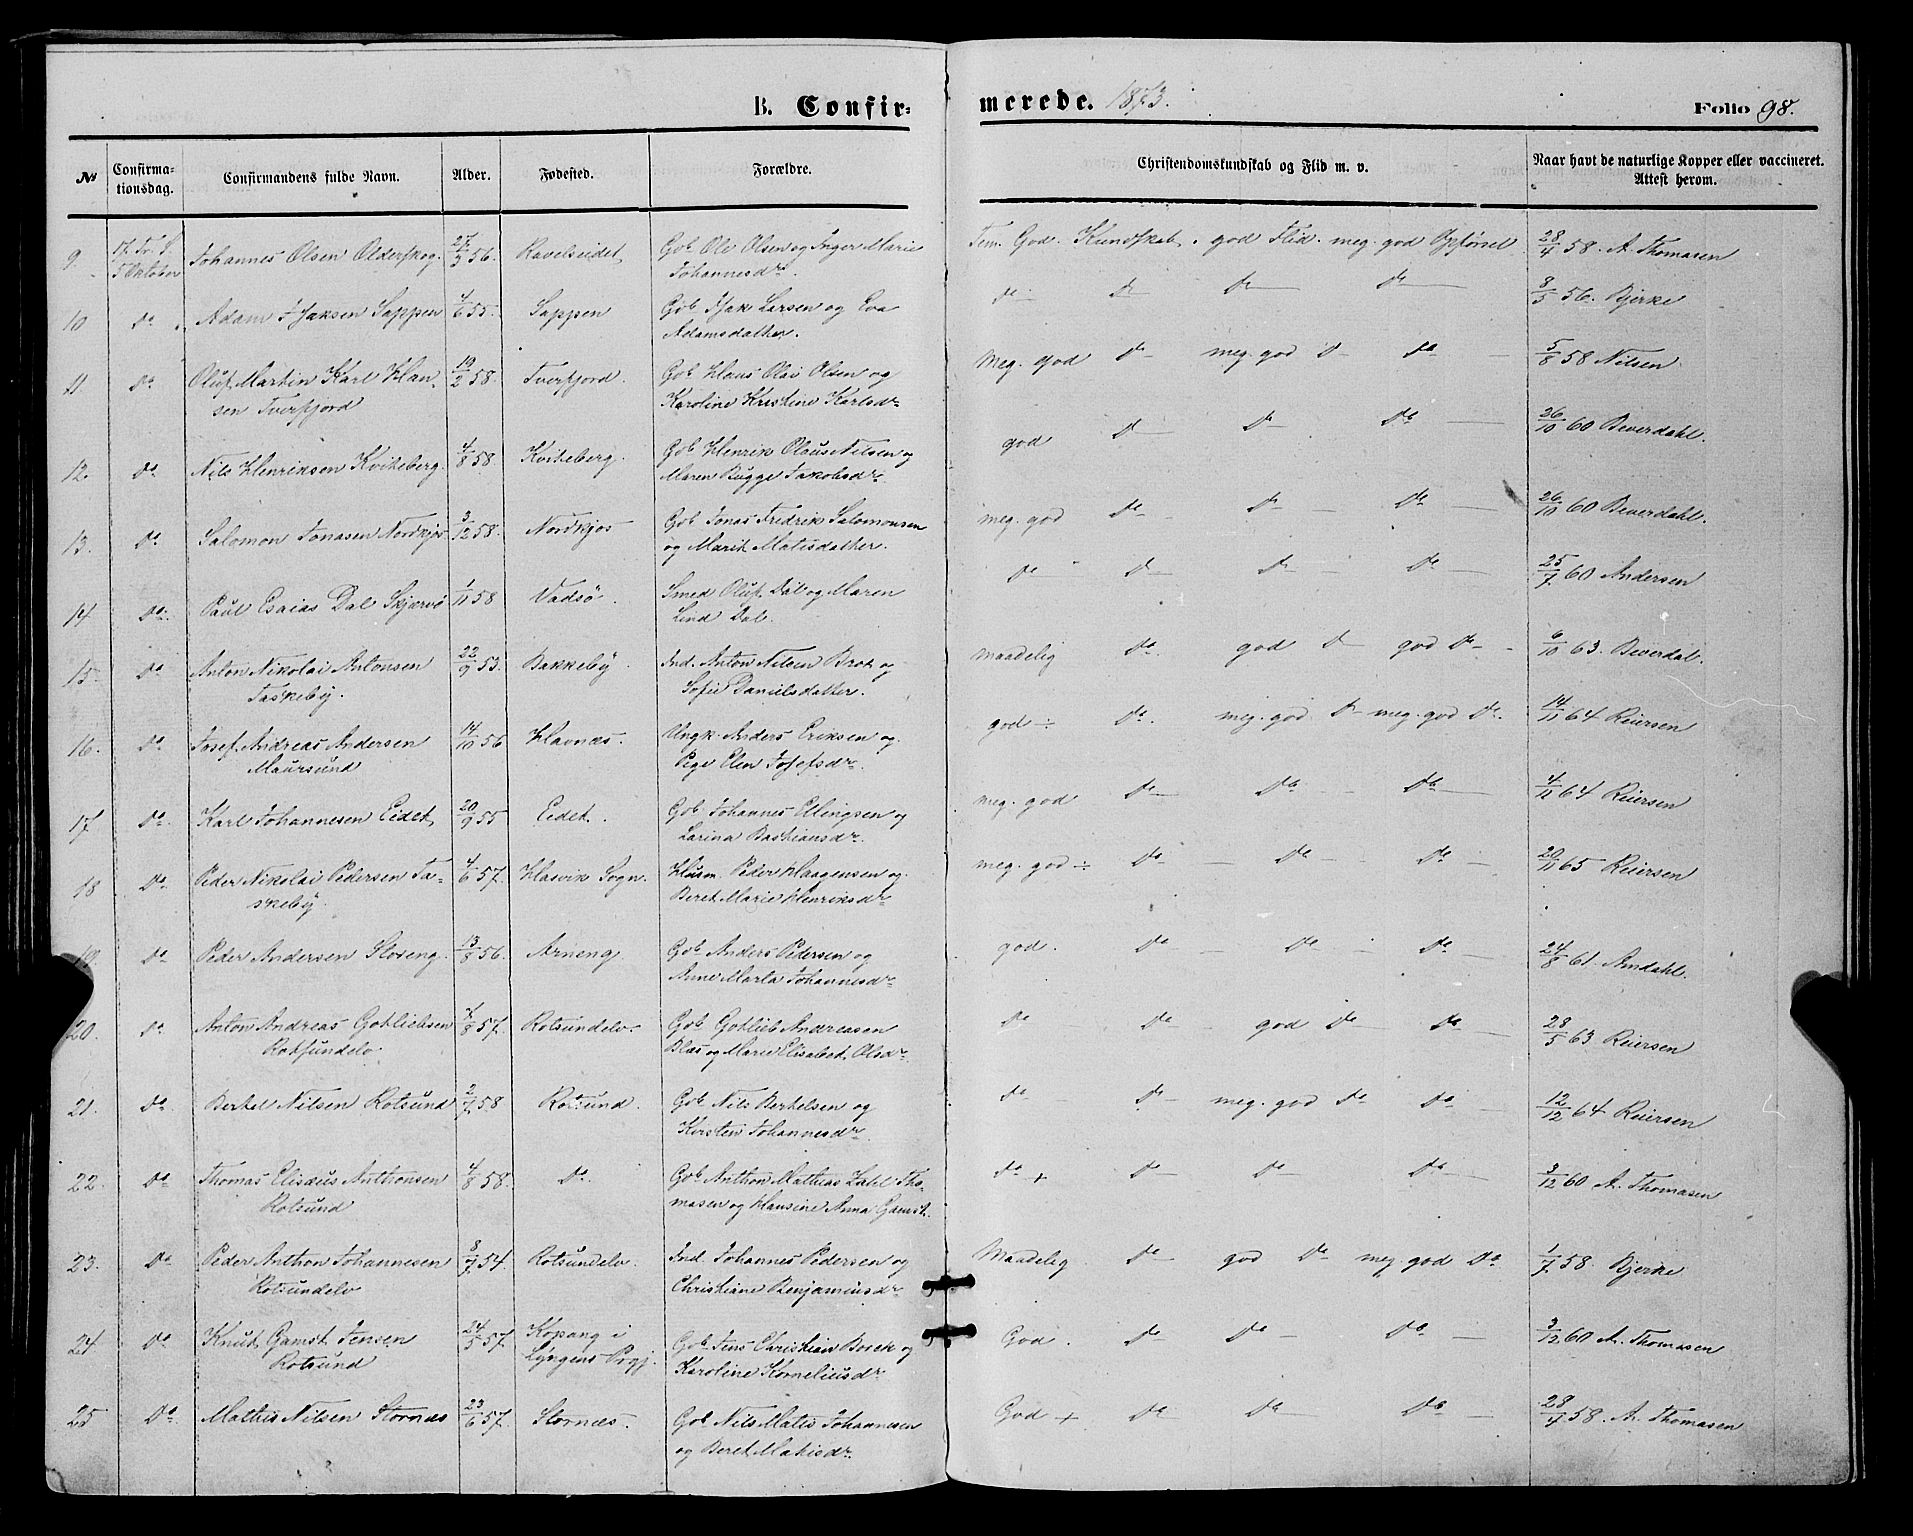 B. Confir-
merede. 1873.
Folio 98.
No
Confirma-
tionsdag.
Confirmandens fulde Navn.
Alder.
Fødested.
Forældre.
Christendomskundskab og Flid m. v.
Naar havt de naturlige Kopper eller vaccineret.
Attest herom.
9. 17. Tr. S. Johannes Olsen Olderskog. 27/5 56. Ravelseidet Gbr Ole Olsen og Inger Marie Tem. God. Kundskab. god Flid. meg. god Opførsel 28/4 58 A. Thomasen
5 Oktober Johannesdr.
10 Do Adam Isaksen Sappen 4/6 55. Sappen Gbr Isak Larsen og Eva Do Do Do Do 8/5 56. Bjerke
Adamsdatter.
11 Do Oluf Martin Karl Han- 19/2 58. Tverfjord. Gbr Hans Olai Olsen og Meg. god Do meg. god Do Do 5/8 58 Nilsen
sen Tverfjord Karoline Kristine Karlsdr
12. Do Nils Henriksen Kviteberg. 4/8 58. Kviteberg. Gbr Henrik Olaus Nilsen og god Do Do Do 26/10 60 Beverdahl.
Maren Bugge Jakobsdr
13. Do Salomon Jonasen Nordkjos 3/12 58. Nordkjos Gbr Jonas Fredrik Salomonsen meg. god Do Do Do 26/10 60 Beverdahl.
og Marit Matisdatter.
14 Do Paul Esaias Dal Skjervø 1/11 58 Vadsö. Smed Oluf Dal og Maren Do Do Do Do 25/7 60 Andersen
Lind Dal.
15. Do Anton Nikolai Antonsen 22/9 53. Bakkeby. Ind. Anton Nilsen Brot og maadelig Do god Do god Do 6/10 63. Beverdal.
Taskeby. Sofie Danielsdatter.
16. Do Josef Andreas Andersen 14/10 56 Havnæs. Ungk. Anders Eriksen og god ÷ Do meg. god Do meg. god Do 14/11 64 Reiersen
Maursund Pige Elen Josefsdr
17 Do Karl Johannesen Eidet 20/9 55 Eidet. Gbr Johannes Ellingsen og meg. god Do Do Do 4/11 64 Reiersen
Larina Bastiansdr.
18 Do Peder Nikolai Pedersen Ta- 4/6 57. Hasvik Sogn. Husm. Peder Haagensen og meg. god ÷ Do Do Do 20/11 65 Reiersen
skeby. Beret Marie Henriksdr
19. Do Peder Andersen Storeng. 13/8 56. Arneng Gbr Anders Pedersen og god. Do Do Do 24/8 61. Amdahl.
Anne Marta Johannesdr
20. Do Anton Andreas Gotliebsen 7/8 57. Rotsundelv. Gbr Gotlieb Andreasen Do Do god Do Do 28/5 63 Reiersen
Rotsundelv Blæs og Marie Elisabet Olsdr
21. Do Bertel Nilsen Rotsund 2/7 58 Rotsund. Gbr Nils Bertelsen og Do Do meg. god Do Do 12/12 64 Reiersen
Kirsten Johannesdr.
22. Do Thomas Elisæus Anthonsen 4/8 58. Do. Gbr Anthon Mathias Lahl Tho- Do + Do Do Do 3/12 60 A. Thomasen
Rotsund masen og Hansine Anna Gamst.
23. Do Peder Anthon Johannesen 8/7 54. Rotsundelv. Ind. Johannes Pedersen og Maadelig Do god Do meg. god Do 1/7 58. Bjerke
Rotsundelv Christiane Benjaminsdr
24. Do Knut Gamst Jensen 24/5 57. Kopang i Gbr Jens Christian Borck og God. Do Do Do 3/12 60 A. Thomasen
Rotsund Lyngens Prgj. Karoline Korneliusdr
25 Do Mathis Nilsen Stornæs 23/6 57. Stornæs. Gbr Nils Matis Johannesen God + Do Do Do 28/4 58. A. Thomasen
og Beret Matisdr.